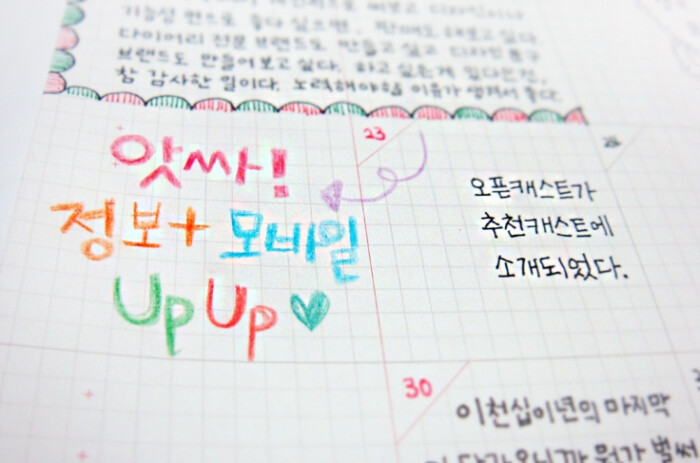 기능성 펜으로 좋다 싶으면,
다이어리 전문 브랜드도 만들고 싶고 디자인 문구
브랜드도 만들어보고 싶다. 하고 싶은게 있다는건,
참 감사한 일이다. 노력해야할 이유가 생겨서 좋다.
앗싸!
정보+ 모바일
Up Up
23
오픈캐스트가
추천캐스트에
소개되었다.
30
이천십이년의 마지막
뭔가 벌써